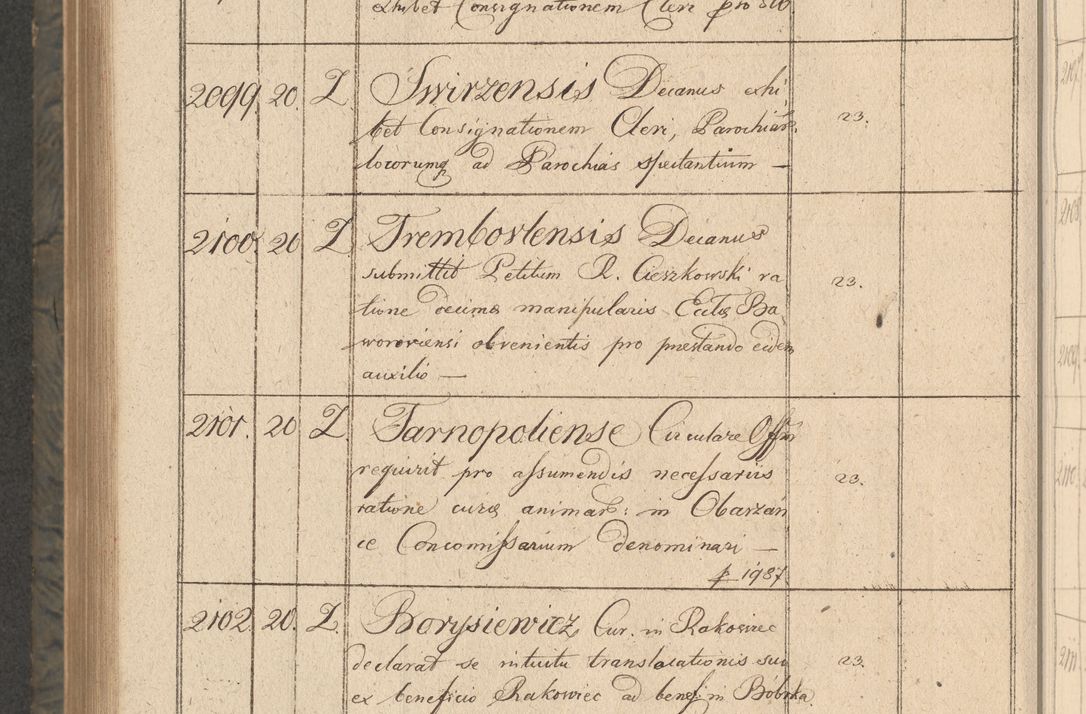 exhibet Consignationem Cleri pro
2099. 20. Z. Swirzensis Decanus exhi
bet Consignationem Cleri, Parochiar: 23.
locorumq ad Parochias spectantium —
2100. 20 Z Trembovlensis Decanus
submittit Petitum R. Cieszkowski ra 23.
tione decimæ manipularis Ecclæ Ba
woroviensi obvenientis pro præstando eidem
auxilio —
2101. 20 Z. Tarnopoliense Circulare Offm
requirit pro assumendis necessariis 23.
ratione curæ animar: in Obarzań
ce Concomissarium denominari —
p 1987.
2102. 20. Z. Borysiewicz Cur. in Rakowiec
declarat se intuitu translocationis suæ 23.
ex beneficio Rakowiec ad benef: in Bóbrka